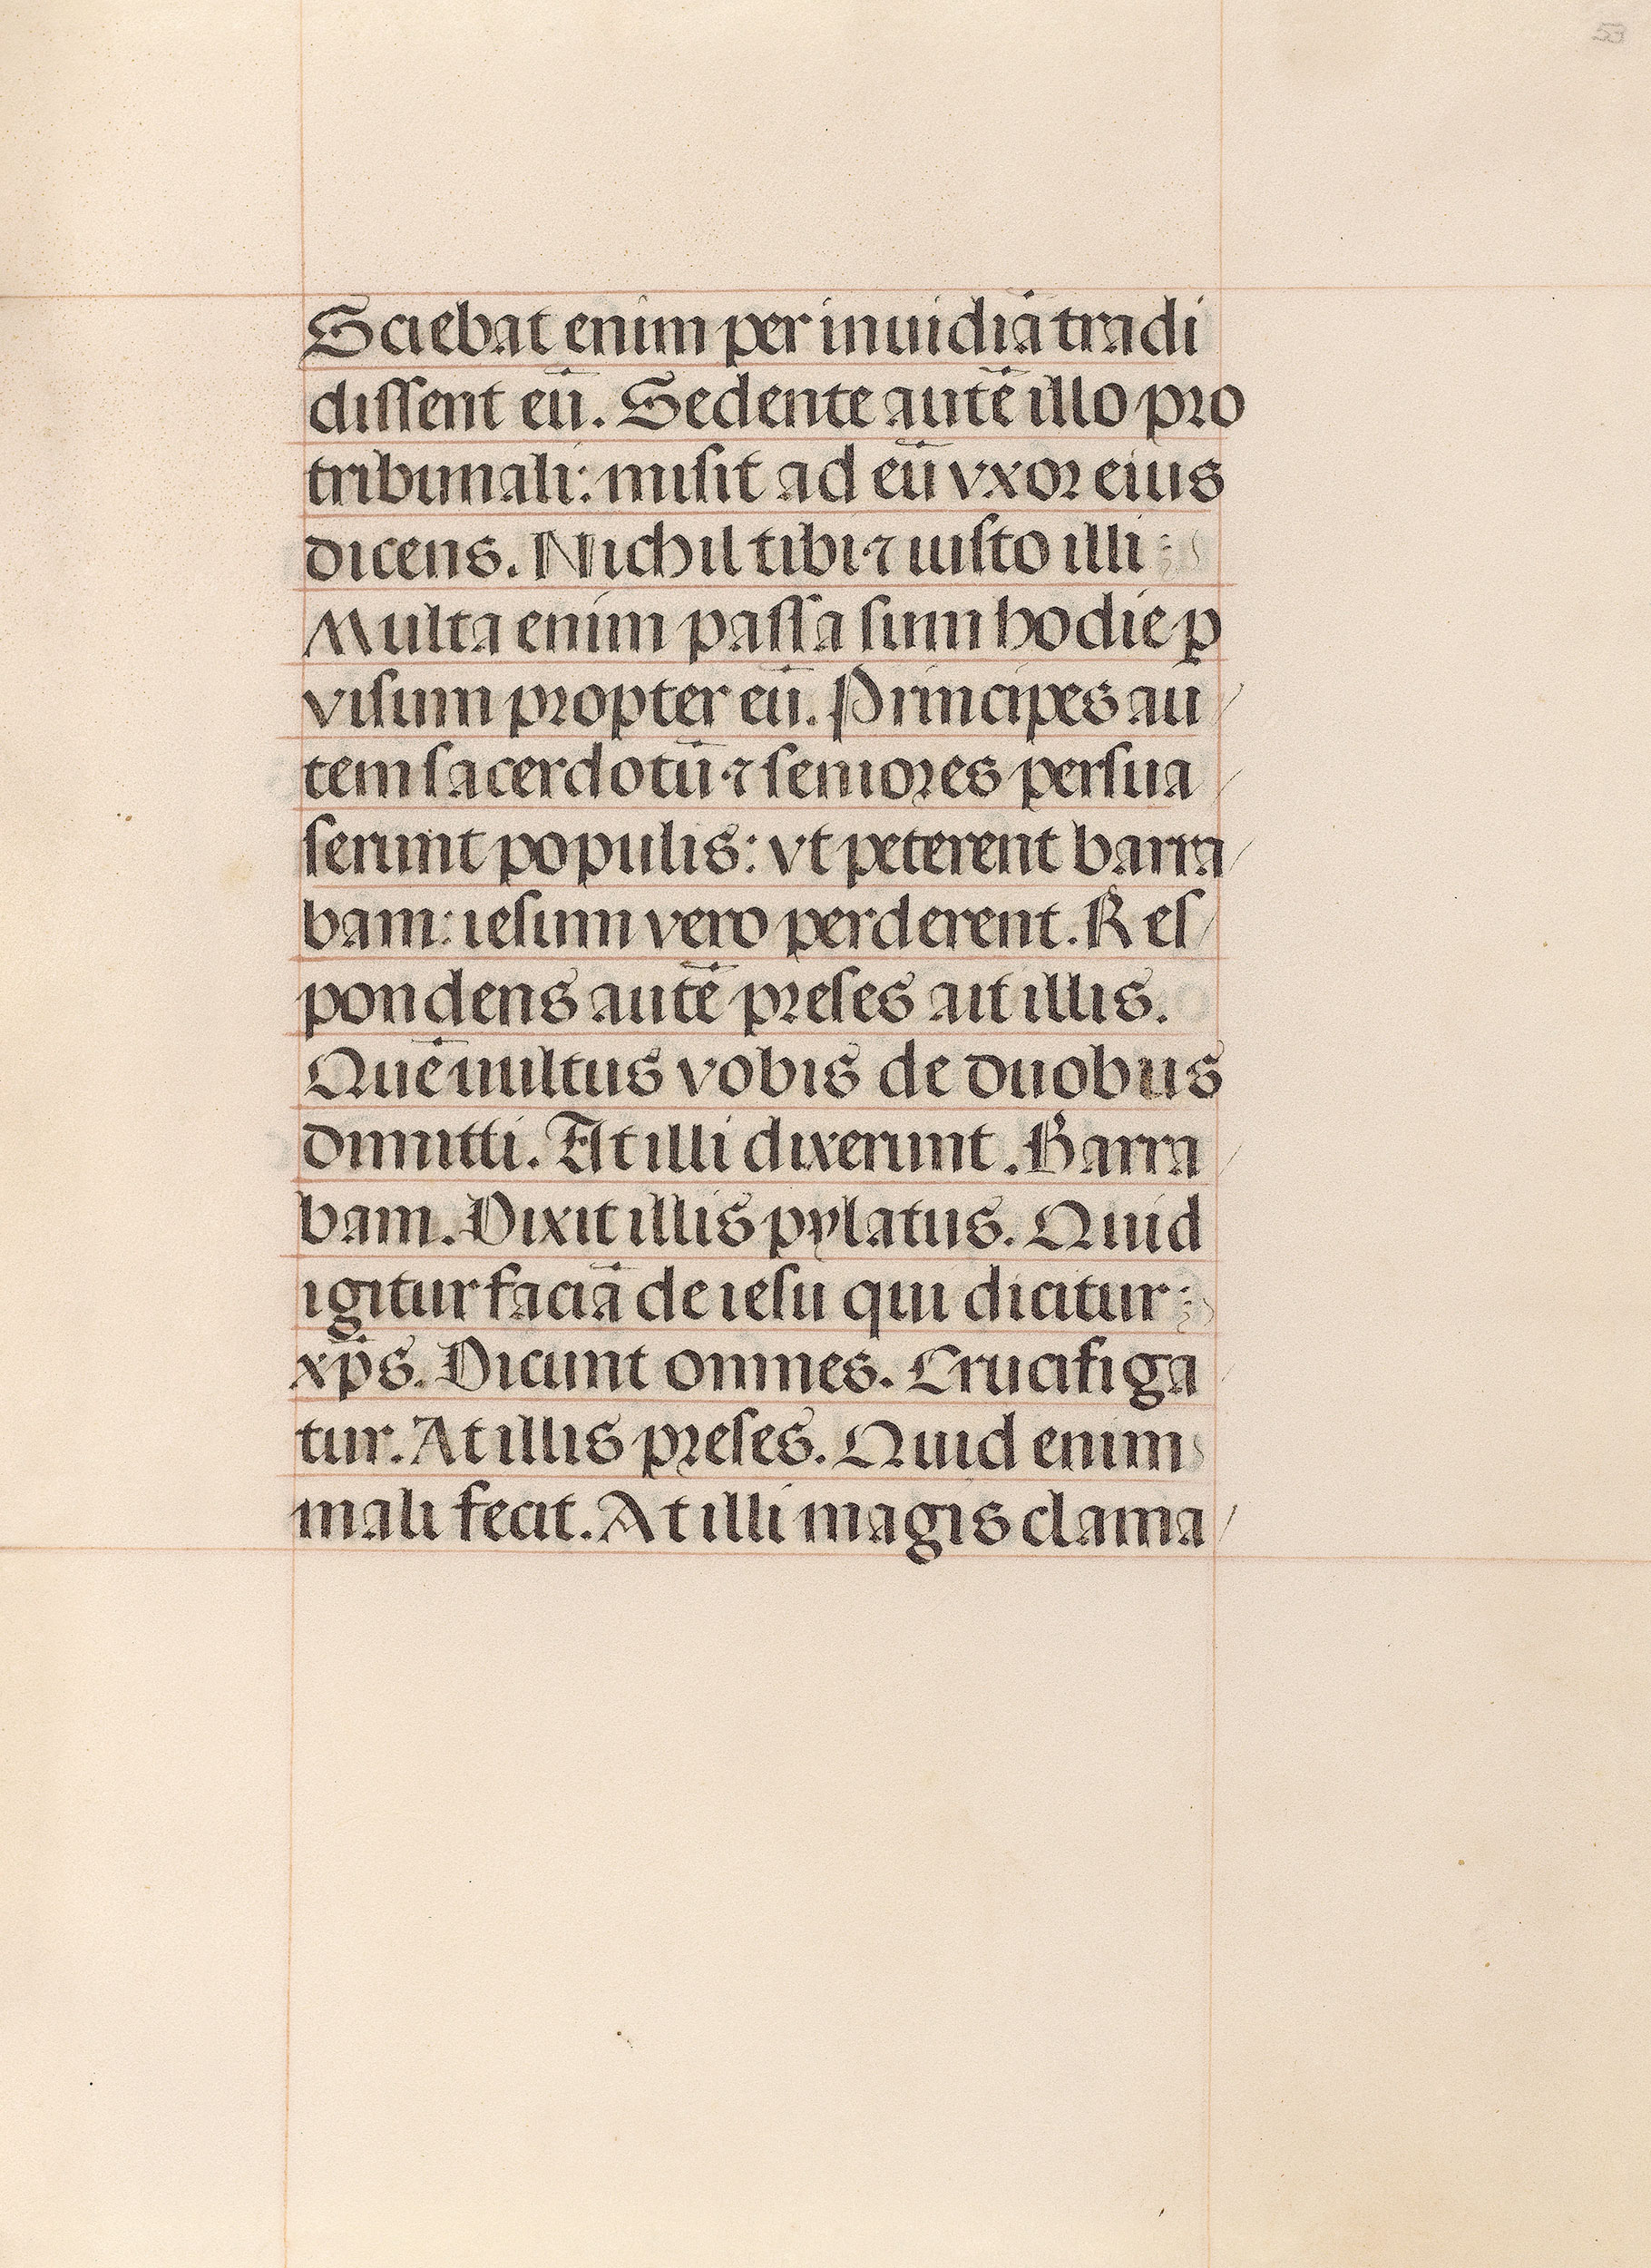 53
Sciebat enim per inuidiā tradi
dissent eū. Sedente autē illo pro
tribunali: misit ad eū vxor eius
dicens. Nichil tibi ⁊ iusto illi
Multa enim passa sum hodie ꝑ
visum propter eū. Principes au/
tem sacerdotū ⁊ seniores persua/
serunt populis: vt peterent barra/
bam: iesum vero perderent. Res/
pondens autē preses ait illis.
Quē uultus vobis de duobus
dimitti. At illi dixerunt. Barra/
bam. Dixit illis pylatus. Quid
igitur faciā de iesu qui dicitur
xp̄s. Dicunt omnes. Crucifiga/
tur. At illis preses. Quid enim
mali fecit. At illi magis clama/